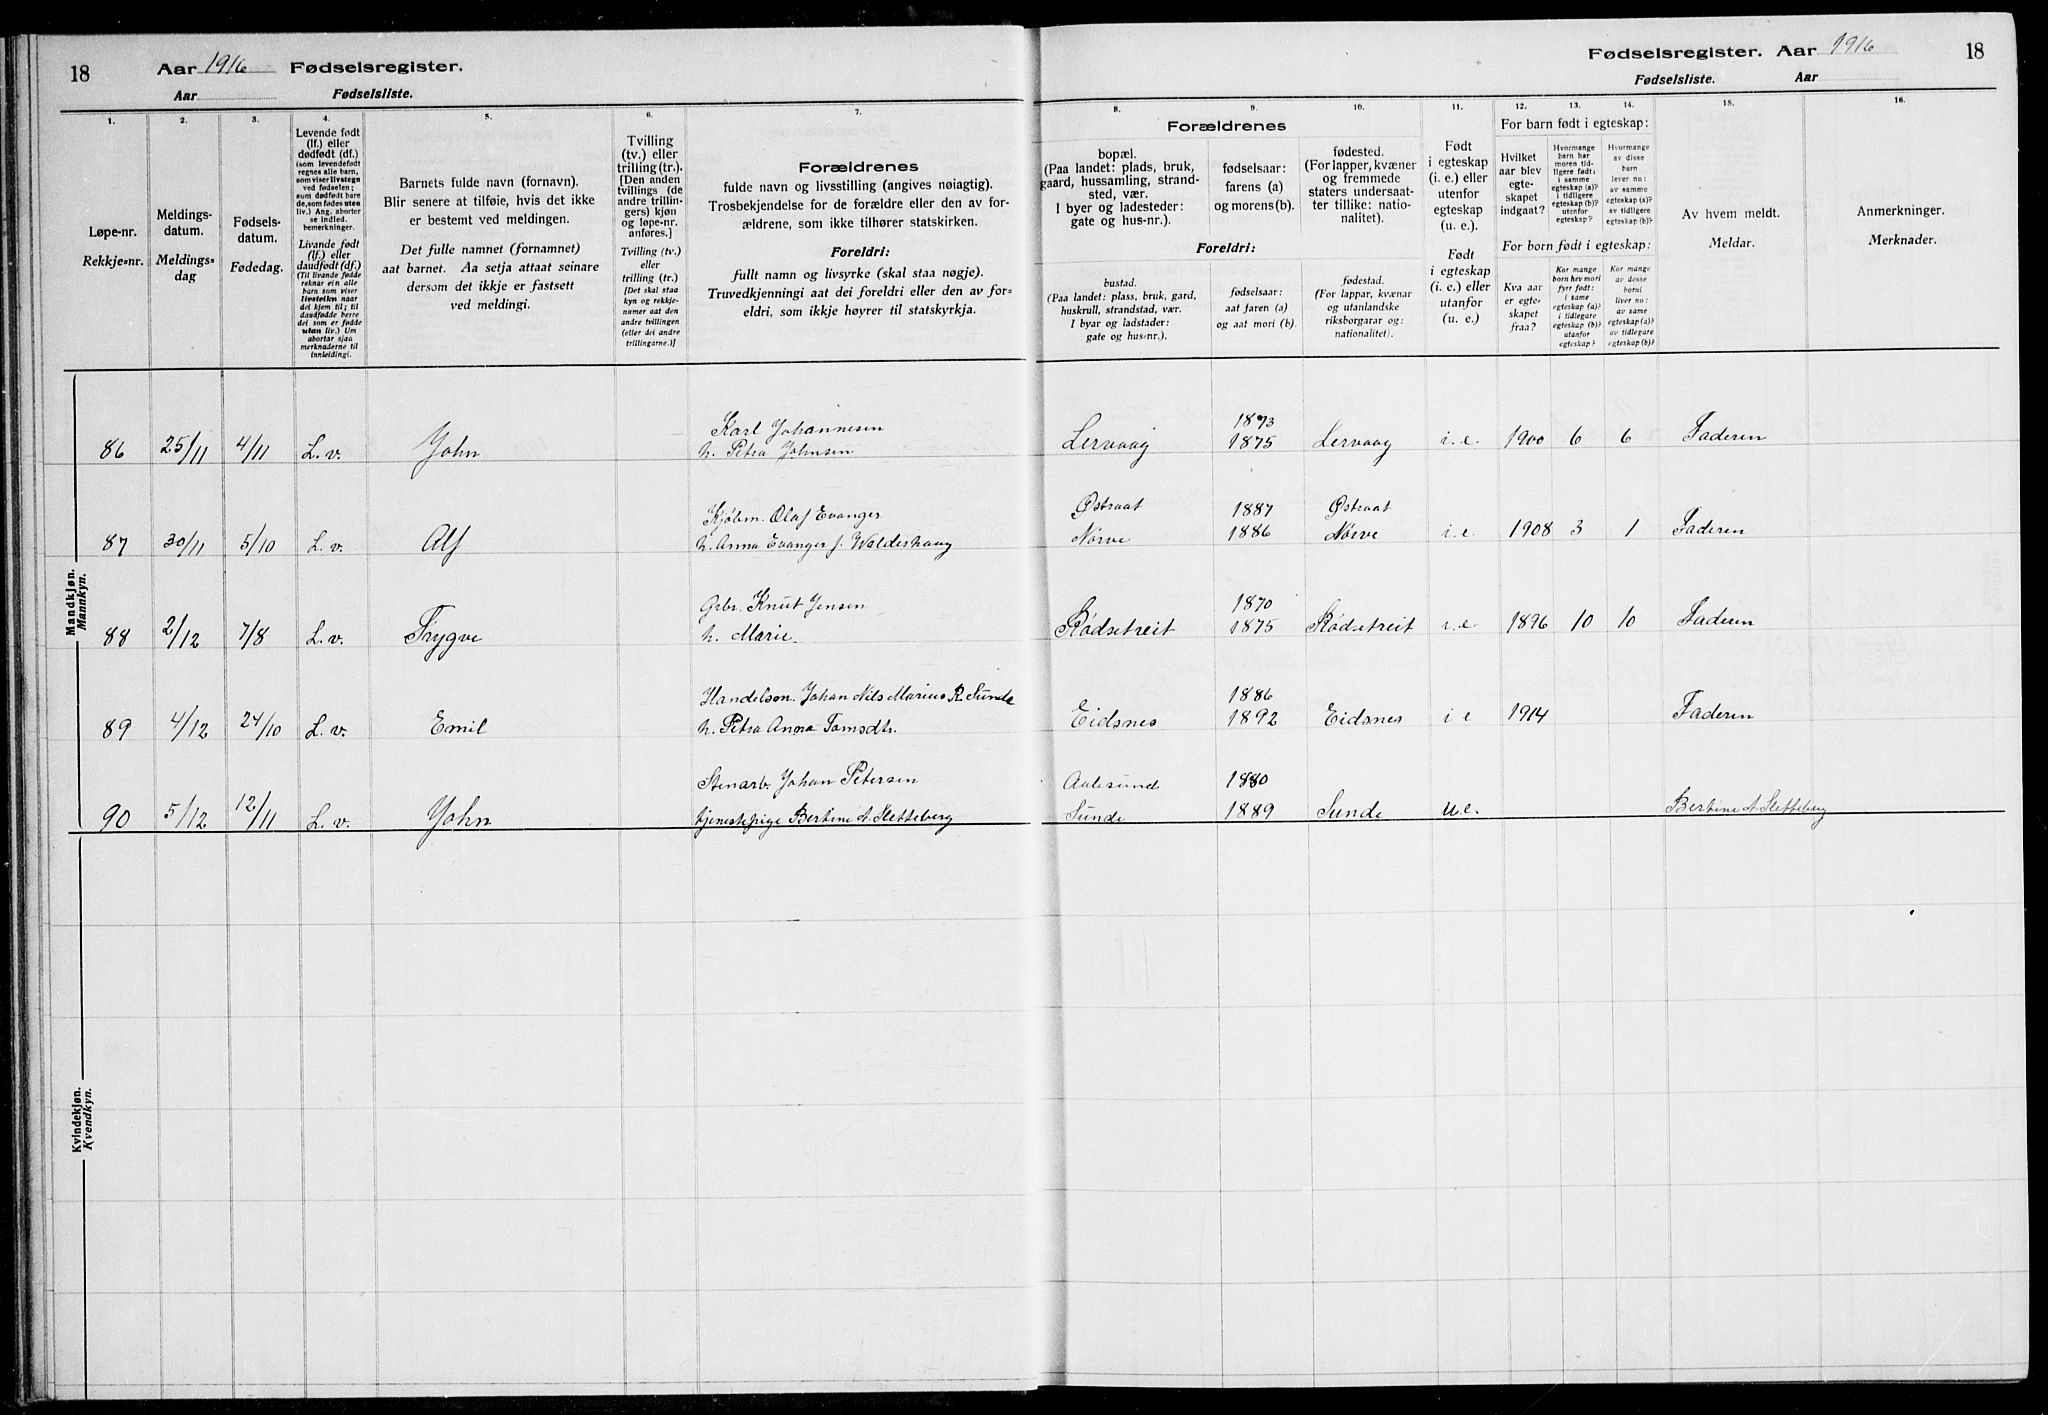 18 Aar 1916 Fødselsregister.
Aar Fødselsliste.
Fødselsregister. Aar 1916 18
Fødselsliste. Aar
1. 2. 3. 4. 5. 6. 7. 8. 9. 10. 11. 12. 13. 14. 15. 16.
Løpe-nr.
Rekkje-nr.
Meldings-
datum.
Meldings-
dag
Fødsels-
datum.
Fødedag.
Levende født
(lf.) eller
dødfødt (df.)
(som levendefødt
regnes alle barn,
som viser livstegn
ved fødselen;
som dødfødt bare
de, som fødes uten
liv.) Ang. aborter
se indled.
bemerkninger.
Livande født
(lf.) eller
daudfødt (df.)
(Til livande fødde
reknar ein alle
barn som viser
livsteikn naar
dei kjem til; til
daudfødde berre
dei som er fødde
utan liv.) Um
abortar sjaa
merknaderne til
innleidingi.
Barnets fulde navn (fornavn).
Blir senere at tilføie, hvis det ikke
er bestemt ved meldingen.
Det fulle namnet (fornamnet)
aat barnet. Aa setja attaat seinare
dersom det ikkje er fastsett
ved meldingi.
Tvilling
(tv.) eller
trilling (tr.).
[Den anden
tvillings (de
andre trillin-
gers) kjøn
og løpe-nr.
anføres.]
Tvilling (tv.)
eller
trilling (tr.)
[Det skal staa
kyn og rekkje-
numer aat den
andre tvillingen
(eller dei andre
trillingarne.)]
Forældrenes
fulde navn og livsstilling (angives nøiagtig).
Trosbekjendelse for de forældre eller den av for-
ældrene, som ikke tilhører statskirken.
Foreldri:
fullt namn og livsyrke (skal staa nøgje).
Truvedkjenningi aat dei foreldri eller den av for-
eldri, som ikkje høyrer til statskyrkja.
Forældrenes
bopæl.
(Paa landet: plads, bruk,
gaard, hussamling, strand-
sted, vær.
I byer og ladesteder:
gate og hus-nr.).
fødselsaar:
farens (a)
og morens (b).
fødested.
(For lapper, kvæner
og fremmede
staters undersaat-
ter tillike: natio-
nalitet).
Foreldri:
bustad.
(Paa landet: plass, bruk, gard,
huskrull, strandstad, vær.
I byar og ladstader:
gate og hus-nr.).
fødselsaar:
aat faren (a)
og aat mori (b).
fødestad.
(For lappar, kvænar
og utanlandske
riksborgarar og:
nationalitet).
Født
i egteskap
(i. e.) eller
utenfor
egteskap
(u. e.).
Født
i egteskap
(i. e.) eller
utanfor
egteskap
(u. e.)
For barn født i egteskap:
Hvilket
aar blev
egte-
skapet
indgaat?
Hvormange
barn har
moren tid-
ligere født:
i samme
egteskap (a)?
i tidligere
egteskap (b)?
utenfor
egteskap?
Hvormange
av disse
barn
lever nu:
av samme
egteskap (a)?
av tidligere
egteskap (b)?
For born født i egteskap:
Kva aar
er egte-
skapet
fraa?
Kor mange
born hev mori
fyrr født:
i same
egteskap (a)?
i tidlegare
egteskap (b)?
utanfor
egteskap?
Kor mange
av desse
borni
liver no:
av same
egteskap (a)?
av tidlegare
egteskap (b)?
Av hvem meldt.
Meldar.
Anmerkninger.
Merknader.
Mandkjøn.
Mannkyn.
Karl Johannesen 1873
86 25/11 4/11 L. v. John h. Petra Johnsen Lervaag 1875 Lervaag i. e. 1900 6 6 Faderen
Kjøbm. Olaf Evanger Østraat 1887 Østraat
87 30/11 5/10 L. v. Alf h. Anna Evanger f. Walderhaug Nørve 1886 Nørve i. e. 1908 3 1 Faderen
Gbr. Knut Jensen 1870
88 2/12 7/8 L. v. Trygve h. Marie. Rødsetreit 1875 Rødsetreit i. e 1896 10 10 Faderen
Handelsm. Johan Nils Marius R. Sunde 1886
89 4/12 24/10 L. v. Emil h. Petra Anna Tomsdtr. Eidsnes 1892 Eidsnes i e 1914 Faderen
Stenarb. Johan Petersen Aalesund 1880
90 5/12 12/11 L. v. John tjenestepige Bertine A. Sletteberg Sunde 1889 Sunde u. e. Bertine A Sletteberg
Kvindekjøn.
Kvendkyn.